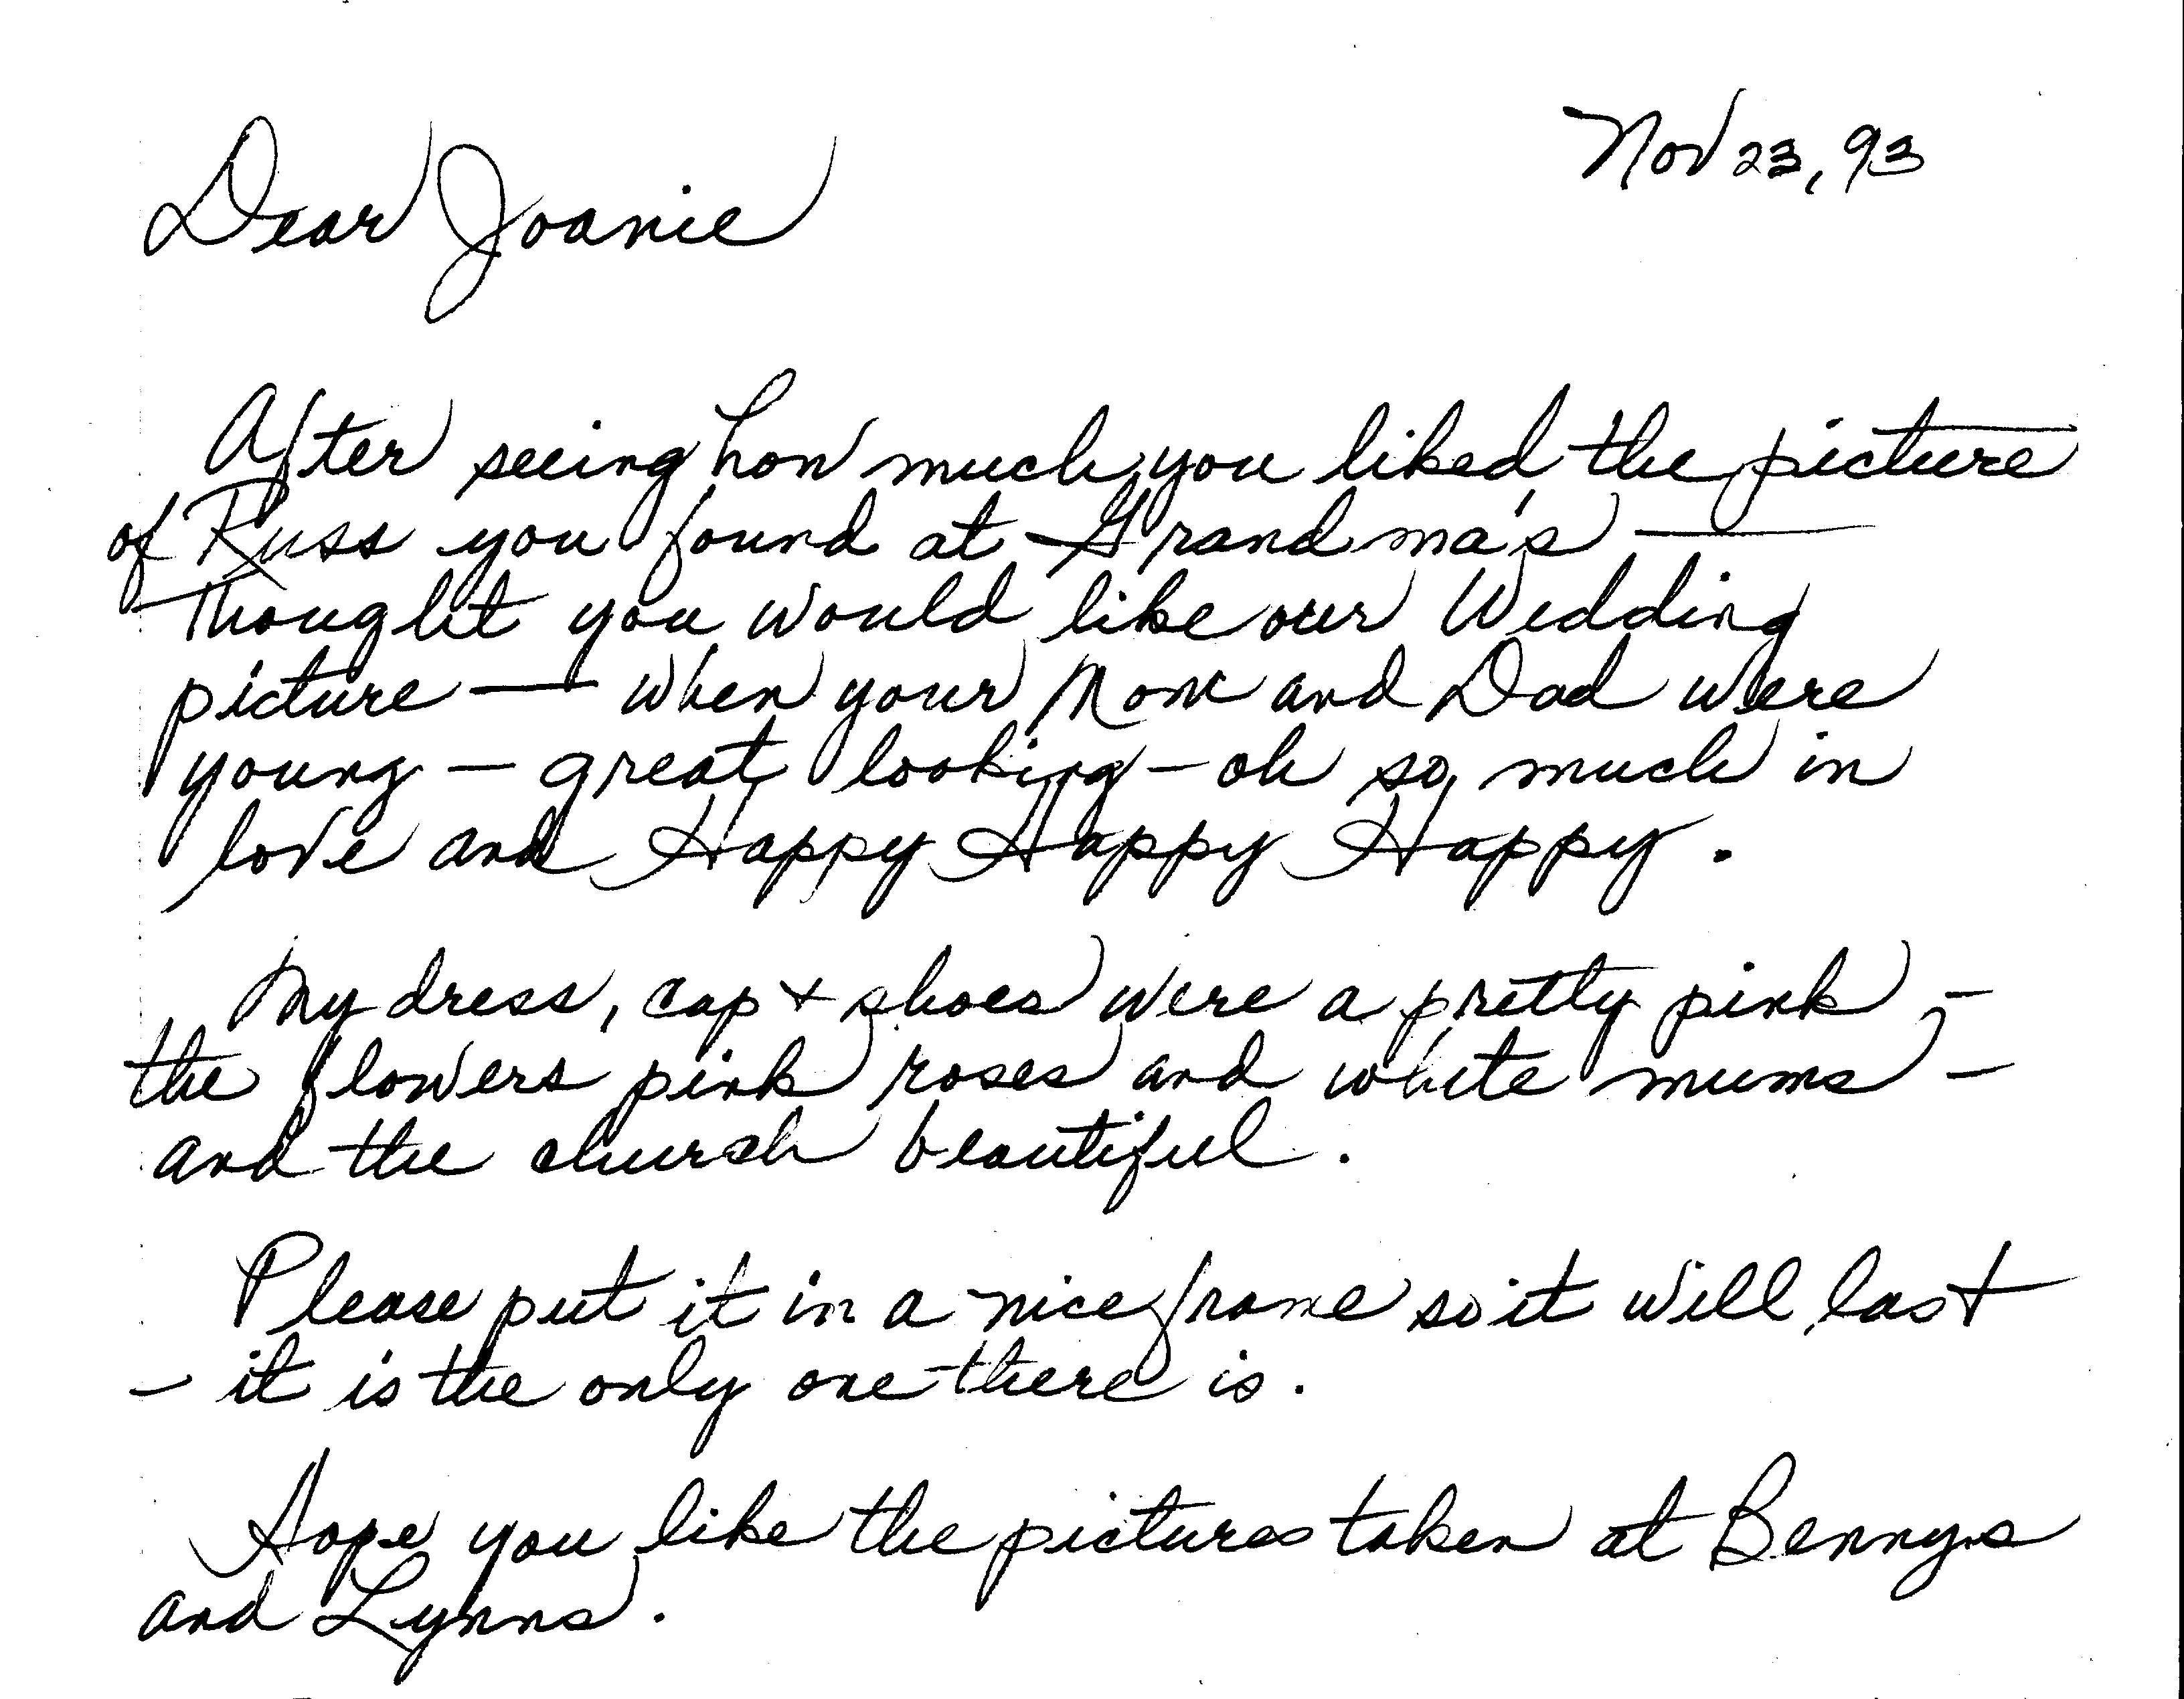 Nov 23, 93
Dear Joanie
After seeing how much you liked the picture
of Russ you found at Grandma's —
Thought you would like our Wedding
picture — when your Mom and Dad were
young — great looking — oh so much in
love and Happy Happy Happy.
My dress, cap + shoes were a pretty pink –
the flowers pink roses and white mums –
and the church beautiful.
Please put it in a nice frame so it will last
– it is the only one there is.
Hope you like the pictures taken at Bennys
and Lynns.